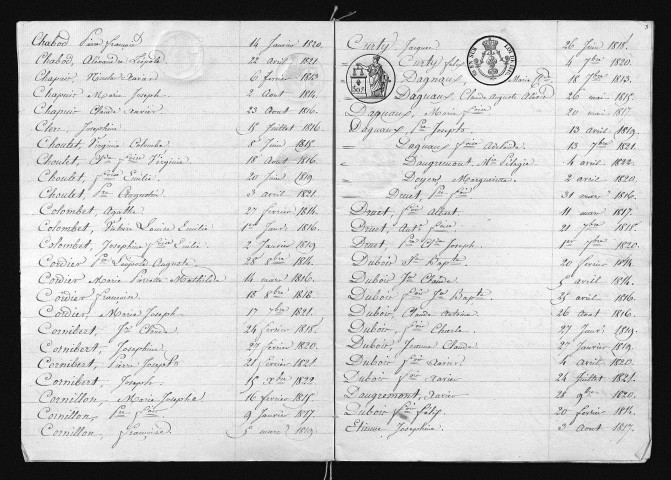 Chabod, Pierre François 14 Janvier 1820.
Chabod, Alexandre Léopold 22 avril 1821.
Chapuis, Nicolas Xavier 6 février 1813
Chapuis Marie Joseph 2 Aout 1814.
Chapuis Claude Xavier 23 Aout 1816.
Clerc, Josephine 15 Juillet 1816.
Choulet, Virginie Colombe 8 Juin 1815.
Choulet, Virginie 18 Aout 1816.
Choulet, Emilie 20 Juin 1819.
Choulet, 3 avril 1821.
Colombet, Agathe 27 février 1814.
Colombet, Louise Emilie 1er Janv. 1816.
Colombet, Josephine 2 Janvier 1819.
Cordier Léopold Auguste 28 8bre 1814.
Cordier Marie Pierrette Mathilde 14 mars 1816.
Cordier Françoise 18 8bre 1818
Cordier, Marie Joseph 17 7bre 1821.
Cornibert, Jn Claude 24 février 1818.
Cornibert, Josephine 27 février 1820.
Cornibert, Pierre Joseph 21 février 1821.
Cornibert, Joseph 15 Xbre 1822.
Cornillon, Marie Josephe 16 février 1815.
Cornillon, 9 Janvier 1817.
Cornillon, Françoise 5 mars 1819.
3
Curty, Jacques 26 Juin 1818.
Curty 4 7bre 1820.
Dagnaux, Marie 18 7bre 1813.
Dagnaux, Claude Auguste 26 mai 1815.
Dagnaux, Marie 20 mai 1817.
Dagnaux, Joseph 13 avril 1819.
Dagnaux Adelaide 13 7bre 1821.
Daugremont, 4 avril 1822.
Doyen, Marguerite 2 avril 1820.
Druet, 31 mars 1816.
Druet, Albert 11 mars 1817.
Druet, 21 7bre 1818.
Druet, Joseph 1er 7bre 1820.
Dubois Bapte 20 février 1814
Dubois Jn Claude 5 avril 1814.
Dubois Bapte 25 avril 1816.
Dubois, Claude Antoine 26 Aout 1816.
Dubois, Charles 27 Janv. 1819.
Dubois, Jeanne Claude 27 Janvier 1819.
Dubois Xavier 4 Avril 1820.
Dubois Xavier 24 Juillet 1821.
Daugremont, Xavier 28 9bre 1820.
Dubois Felix 20 février 1812.
Etienne Josephine 3 Aout 1817.